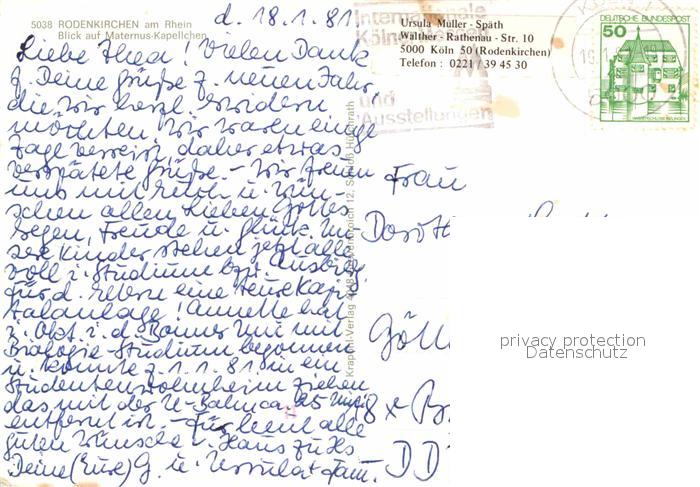 5038 RODENKIRCHEN am Rhein
Blick auf Maternus-Kapellchen
d. 18.1.81
Liebe Thea! Vielen Dank
f. Deine Grüße z. neuen Jahr,
die wir herzl. erwidern
möchten. Wir waren einige
Tage verreist, daher etwas
verspätete Grüße - Wir freuen
uns mit Euch u. wün-
schen allen Lieben Gottes
Segen, Freude u. Glück. Un-
sere Kinder stehen jetzt alle
voll i. Studium bzw. Ausbildg.
für d. Eltern eine teure Kapi-
talanlage! Annette hat
i. Okt. i. d. Bonner Uni mit
Biologie-Studium begonnen
u. konnte z. 1.1.81 in ein
Studentenwohnheim ziehen
das mit der U-Bahn ca. 25 Min.
entfernt ist. - Für heut alle
guten Wünsche v. Haus zu Hs
Deine (Eure) G. u. Ursula + Fam.
Krapohl-Verlag
Schloß Hülchrath
Internationale
Köln
und
Ausstellungen
Ursula Müller - Späth
Walther - Rathenau - Str. 10
5000 Köln 50 (Rodenkirchen)
Telefon : 0221 / 39 45 30
DEUTSCHE BUNDESPOST
50
Frau
Dorot
Gött
DD
privacy protection
Datenschutz